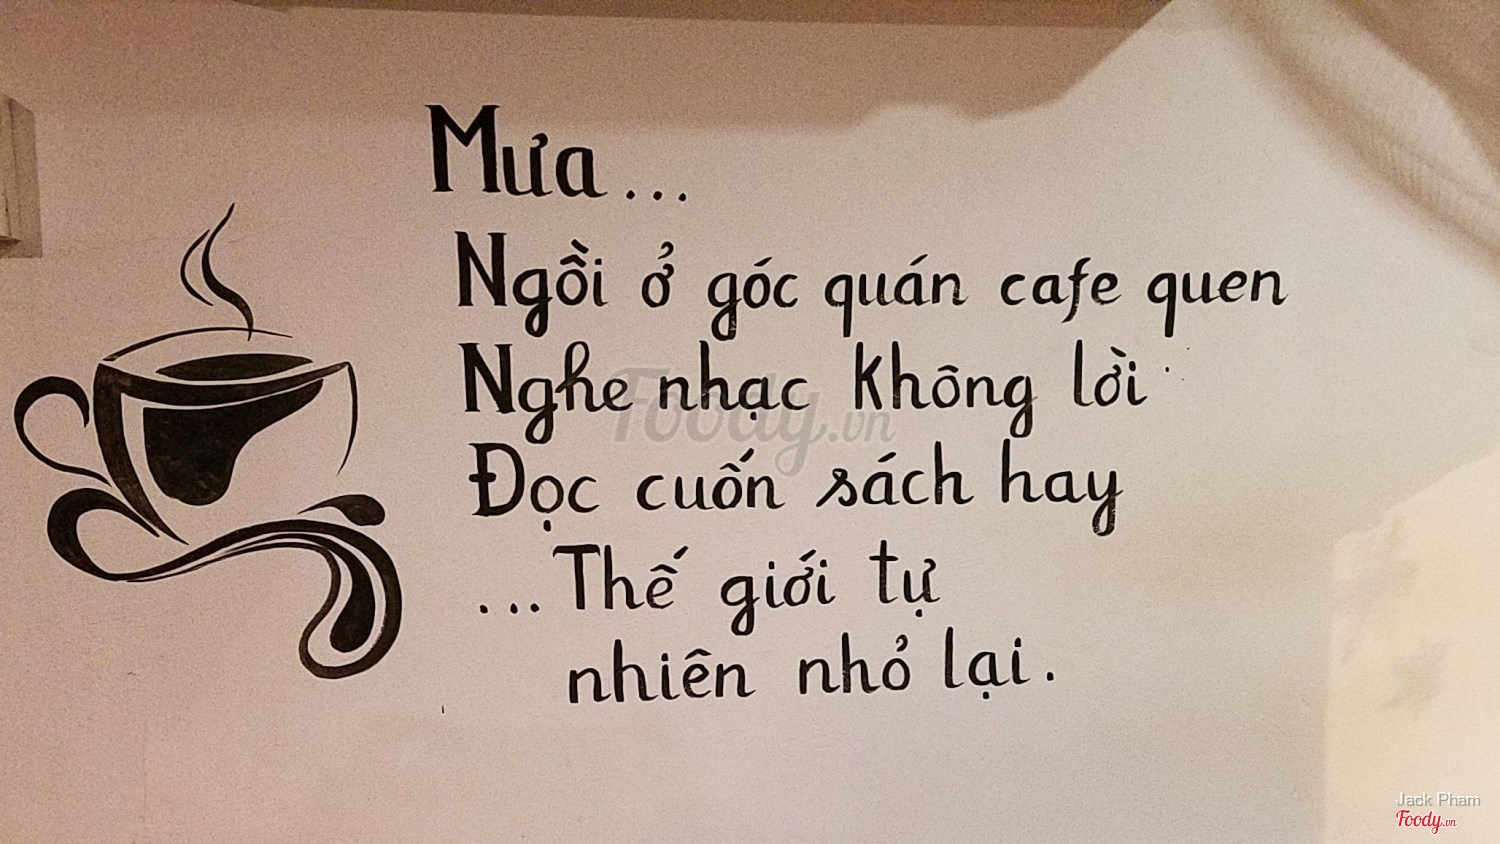 Mưa...
Ngồi ở góc quán cafe quen
Nghe nhạc không lời
Đọc cuốn sách hay
...Thế giới tự
nhiên nhỏ lại.
Foody.vn
Jack Pham
Foody.vn